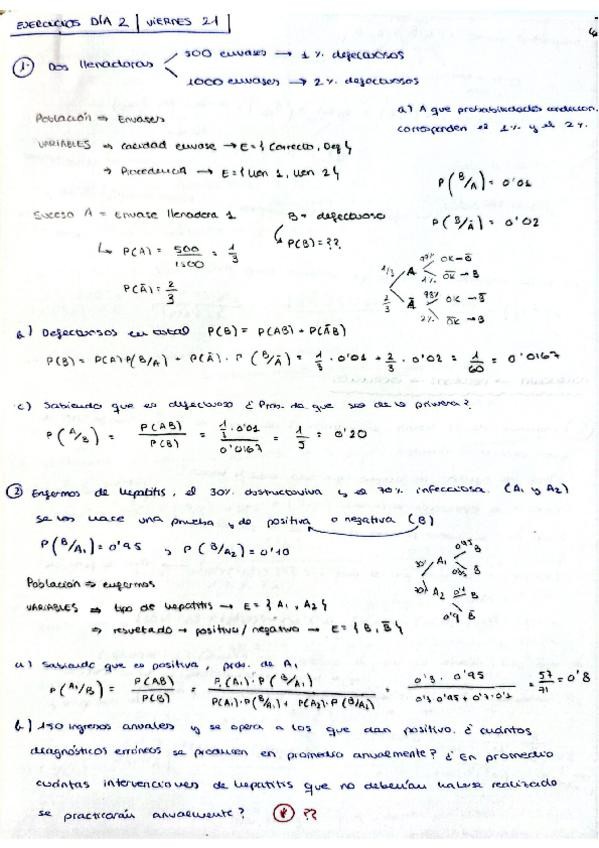 EJERCICIOS DÍA 2 | VIERNES 21
1. Dos llenadoras
500 envases → 1% defectuosos
1000 envases → 2% defectuosos
a) A que probabilidades condicion.
corresponden el 1% y el 2%.
Población ⇒ Envases
VARIABLES ⇒ calidad envase → E = { Correcto, Def }
⇒ Procedencia → E = { Llen 1, Llen 2 }
P(B/A) = 0'01
P(B/Ā) = 0'02
Suceso A = Envase llenadora 1
B = defectuoso
↳ P(A) = 500/1500 = 1/3
↳ P(B) = ??
P(Ā) = 2/3
1/3 A 99% OK → B̄
1% O̅K̅ → B
2/3 Ā 98% OK → B̄
2% O̅K̅ → B
b) Defectuosos en total P(B) = P(AB) + P(ĀB)
P(B) = P(A) P(B/A) + P(Ā) · P(B/Ā) = 1/3 · 0'01 + 2/3 · 0'02 = 1/60 = 0'0167
c) Sabiendo que es defectuoso ¿Prob. de que sea de la primera?
P(A/B) = P(AB)/P(B) = (1/3 · 0'01)/0'0167 = 1/5 = 0'20
2 Enfermos de hepatitis, el 30% obstructiva y el 70% infecciosa. (A₁ y A₂)
se les hace una prueba y da positiva o negativa (B)
P(B/A₁) = 0'95 , P(B/A₂) = 0'10
30% A₁ 0'95 B
0'05 B̄
70% A₂ 0'1 B
0'9 B̄
Población ⇒ enfermos
VARIABLES ⇒ tipo de hepatitis → E = { A₁, A₂ }
⇒ resultado → positiva/negativo → E = { B, B̄ }
a) Sabiendo que es positiva, prob. de A₁
P(A₁/B) = P(AB)/P(B) = P(A₁) · P(B/A₁) / P(A₁) · P(B/A₁) + P(A₂) · P(B/A₂) = 0'3 · 0'95 / 0'3 0'95 + 0'7 · 0'1 = 57/71 = 0'8
b) 150 ingresos anuales y se opera a los que dan positivo. ¿Cuántos
diagnósticos erróneos se producen en promedio anualmente? ¿En promedio
cuántas intervenciones de hepatitis que no deberían haberse realizado
se practicarán anualmente? ??